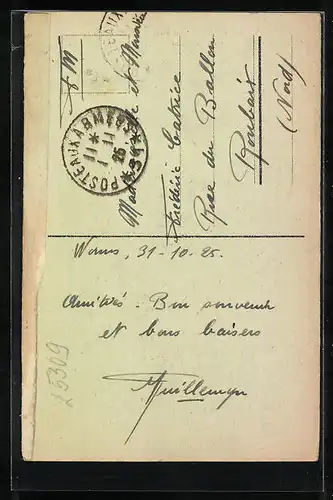 F M
POSTE AUX ARMEES
11 - 11
1
25
* 31 *
et
Frédéric Catrice
Rue du Ballon
Roubaix
(Nord)
Worms, 31-10-25.
Amitiés. Bon souvenir
et bons baisers
25309